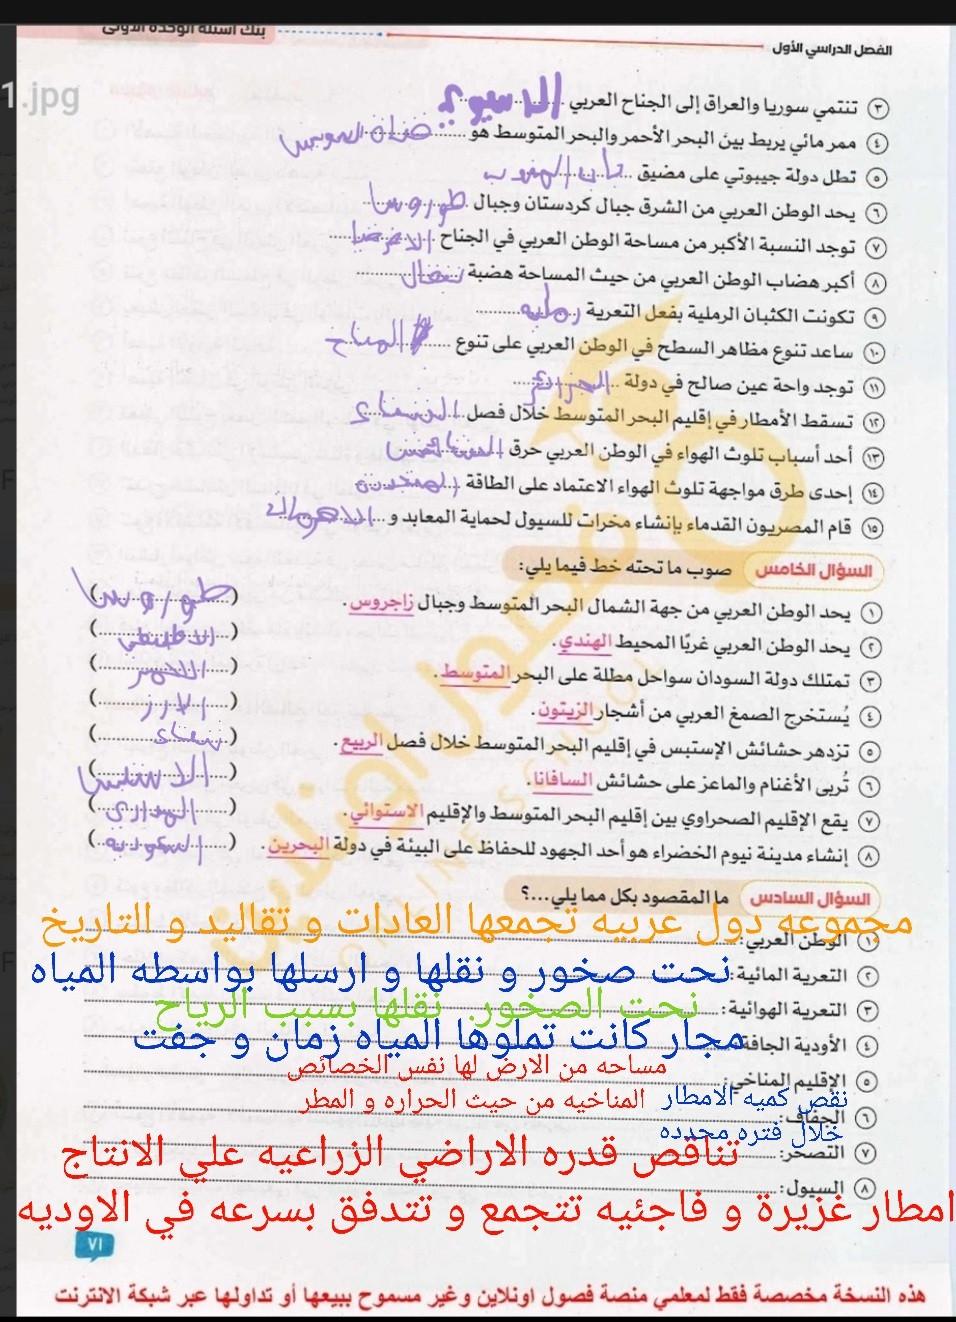 بنك أسئلة الوحدة الأولى
الفصل الدراسي الأول
1.jpg
٣ تنتمي سوريا والعراق إلى الجناح العربي
٤ ممر مائي يربط بين البحر الأحمر والبحر المتوسط هو
٥ تطل دولة جيبوتي على مضيق
٦ يحد الوطن العربي من الشرق جبال كردستان وجبال طوروسا
٧ توجد النسبة الأكبر من مساحة الوطن العربي في الجناح
٨ أكبر هضاب الوطن العربي من حيث المساحة هضبة
٩ تكونت الكثبان الرملية بفعل التعرية
١٠ ساعد تنوع مظاهر السطح في الوطن العربي على تنوع المناخ
١١ توجد واحة عين صالح في دولة الجزائر
١٢ تسقط الأمطار في إقليم البحر المتوسط خلال فصل
١٣ أحد أسباب تلوث الهواء في الوطن العربي حرق
١٤ إحدى طرق مواجهة تلوث الهواء الاعتماد على الطاقة
١٥ قام المصريون القدماء بإنشاء مخرات للسيول لحماية المعابد و
السؤال الخامس صوب ما تحته خط فيما يلي:
١ يحد الوطن العربي من جهة الشمال البحر المتوسط وجبال زاجروس. (طوروسا)
٢ يحد الوطن العربي غربًا المحيط الهندي. (الاطلنطي)
٣ تمتلك دولة السودان سواحل مطلة على البحر المتوسط. (الاحمر)
٤ يُستخرج الصمغ العربي من أشجار الزيتون. (الارز)
٥ تزدهر حشائش الإستبس في إقليم البحر المتوسط خلال فصل الربيع. ( )
٦ تُربى الأغنام والماعز على حشائش السافانا. ( )
٧ يقع الإقليم الصحراوي بين إقليم البحر المتوسط والإقليم الاستوائي. (المداري)
٨ إنشاء مدينة نيوم الخضراء هو أحد الجهود للحفاظ على البيئة في دولة البحرين. (السعوديه)
السؤال السادس ما المقصود بكل مما يلي...؟
مجموعه دول عربيه تجمعها العادات و تقاليد و التاريخ
١ الوطن العربي:
٢ التعرية المائية: نحت صخور و نقلها و ارسلها بواسطه المياه
٣ التعرية الهوائية: نحت الصخور. نقلها بسبب الرياح
٤ الأودية الجافة: مجار كانت تملوها المياه زمان و جفت
مساحه من الارض لها نفس الخصائص
٥ الإقليم المناخي:
المناخيه من حيث الحراره و المطر
نقص كميه الامطار
٦ الجفاف:
خلال فتره محدده
٧ التصحر: تناقص قدره الاراضي الزراعيه علي الانتاج
٨ السيول:
امطار غزيرة و فاجئيه تتجمع و تتدفق بسرعه في الاوديه
٧١
هذه النسخة مخصصة فقط لمعلمي منصة فصول اونلاين وغير مسموح ببيعها أو تداولها عبر شبكة الانترنت